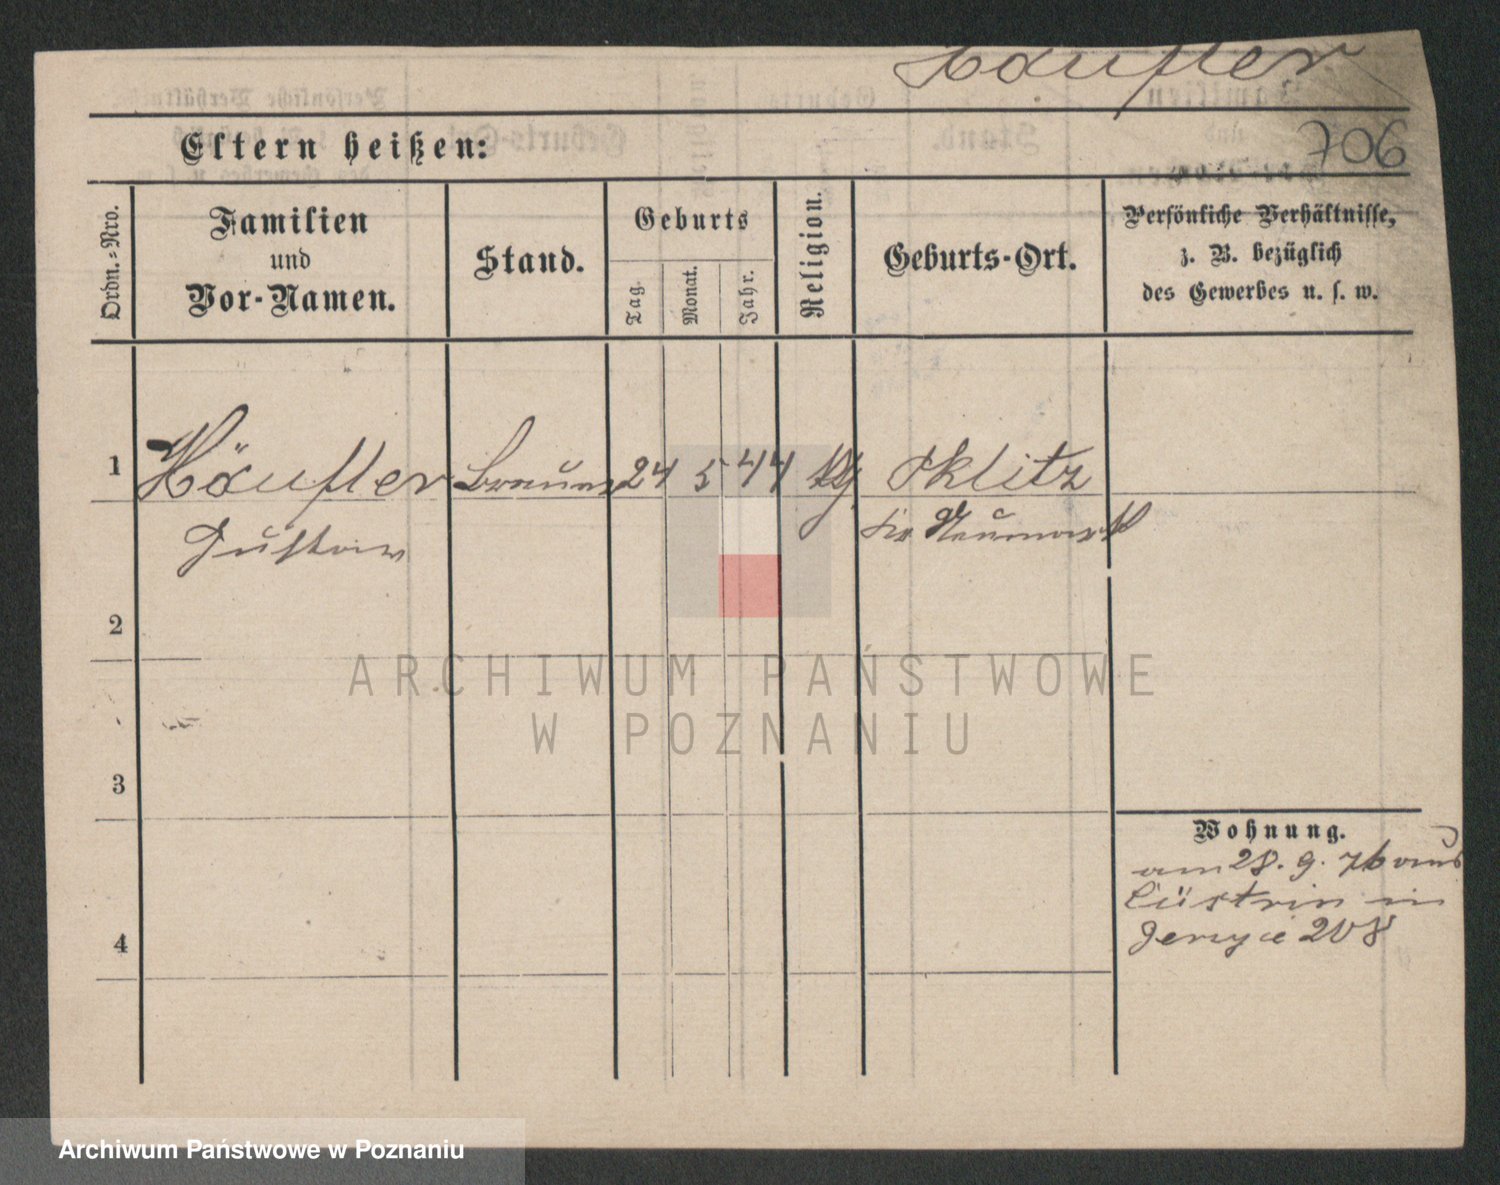 Häusler
706
Eltern heißen:
Ordn.=Nro.
Familien
und
Vor-Namen.
Stand.
Geburts
Tag.
Monat.
Jahr.
Religion.
Geburts-Ort.
Persönliche Verhältnisse,
z. B. bezüglich
des Gewerbes u. s. w.
1 Häusler 24 5 44
Gustav
2
3
4
Wohnung.
am 28. 9. 76 aus
Cüstrin in
Jerzyce 208
ARCHIWUM PAŃSTWOWE
W POZNANIU
Archiwum Państwowe w Poznaniu